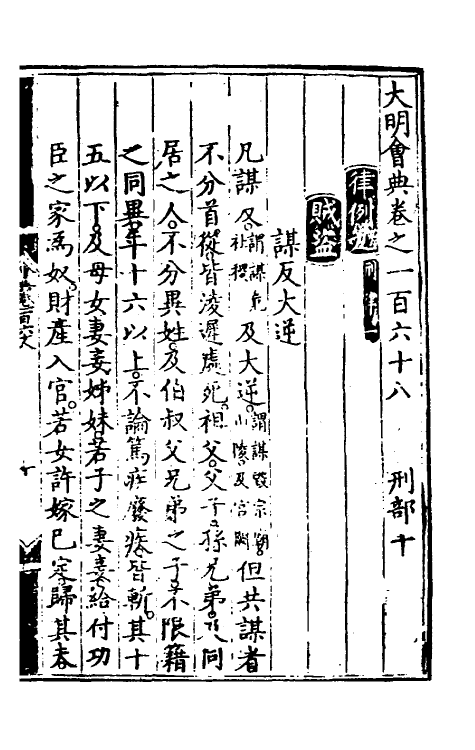 大明會典卷之一百六十八　　刑部十
律例九　刑律一
賊盜
謀反大逆
凡謀反謂謀危社稷及大逆謂謀毀宗廟山陵及宮闕但共謀者
不分首從皆淩遲處死祖父父子孫兄弟及同
居之人不分異姓及伯叔父兄弟之子不限籍
之同異年十六以上不論篤疾廢疾皆斬其十
五以下及母女妻妾姊妹若子之妻妾給付功
臣之家為奴財產入官若女許嫁已定歸其夫